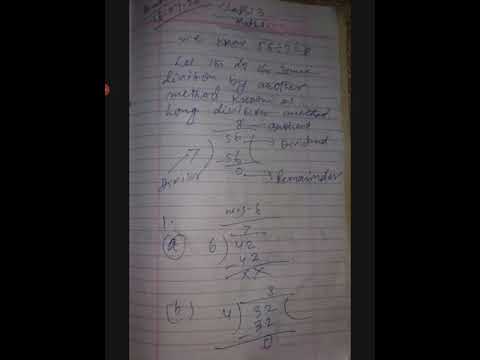 Class 3
Maths
we know 56÷7=8
Let us do the same
division by another
method known as
Long division method
8 → quotient
7 ) 56 ( → Dividend
56
Divisor
0 → Remainder
1.
(a) 7
6 ) 42
42
XX
(b) 8
4 ) 32 (
32
0